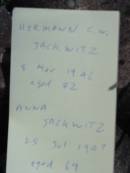 HERMANN C.W.
JACKWITZ
8 Nov 1942
aged 82
ANNA
JACKWITZ
25 Jul 1947
aged 69